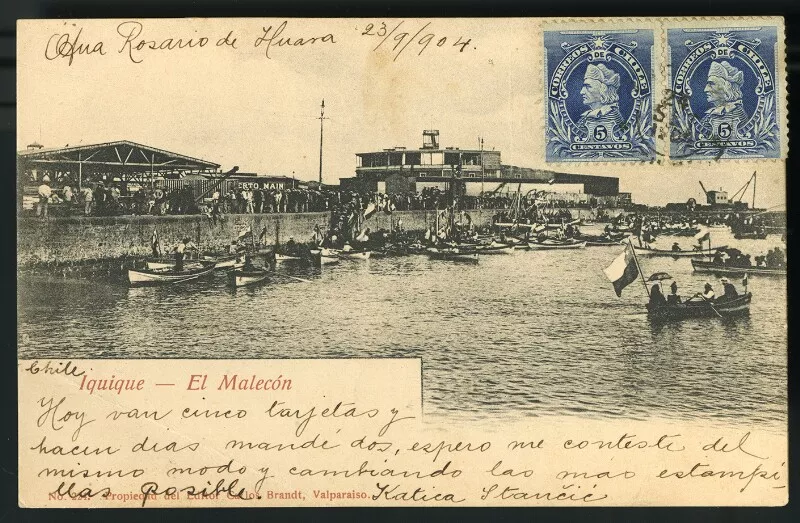 Ofna Rosario de Huara 23/9/904.
CORREOS DE CHILE
5
CENTAVOS
CORREOS DE CHILE
5
CENTAVOS
MAIN
Chile.
Iquique — El Malecón
Hoy van cinco tarjetas y
hacen dias mandé dos, espero me conteste del
mismo modo y cambiando las mas estampi
llas posible. Katica Stančić
Propiedad del Editor Carlos Brandt, Valparaiso.